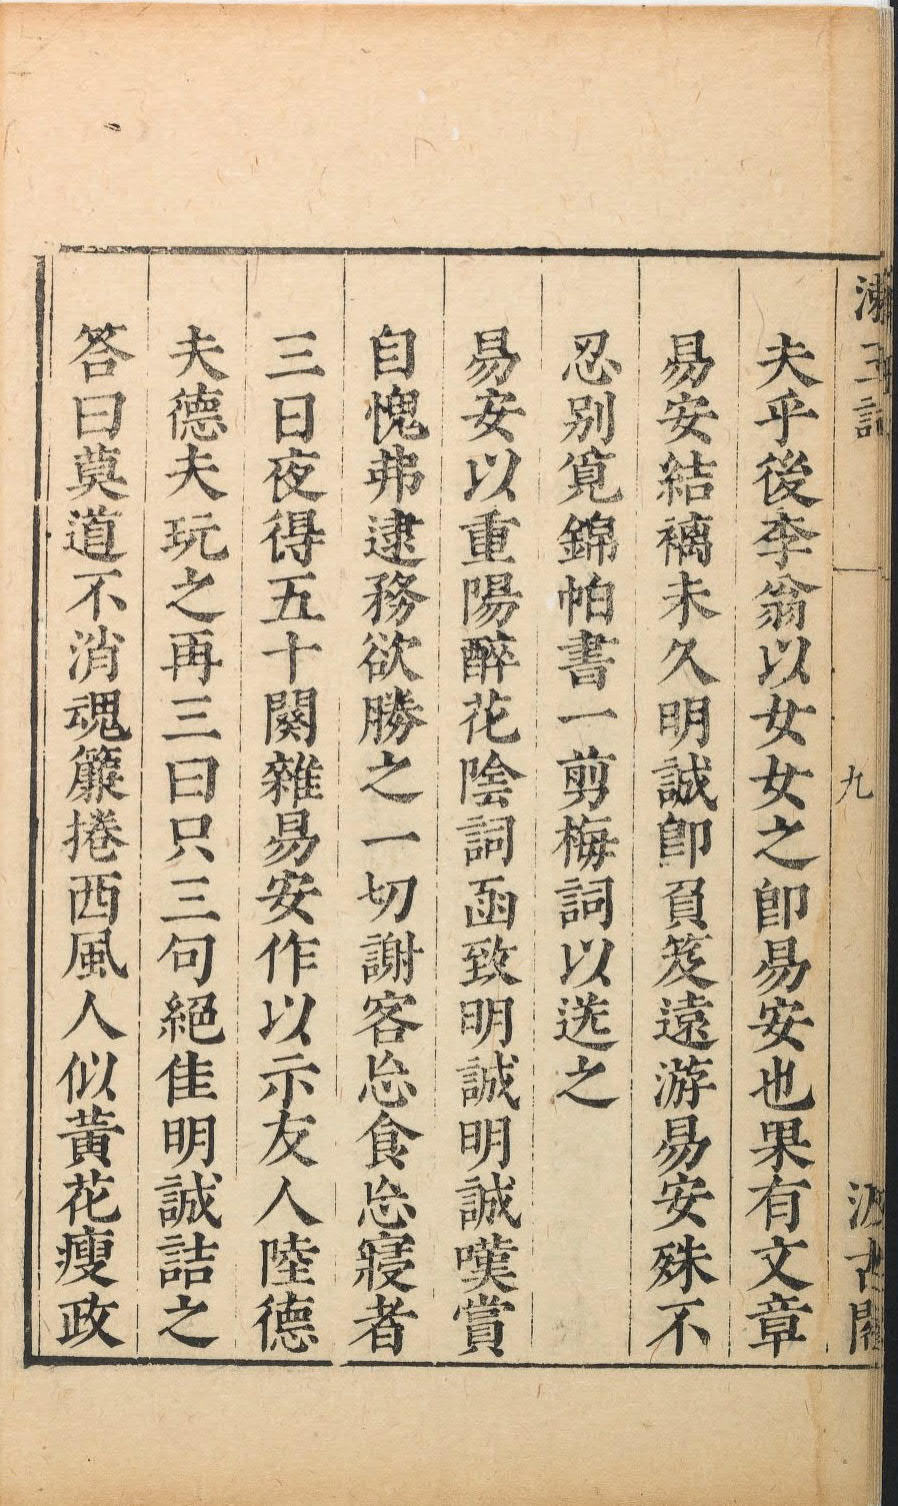 漱玉詞
九
汲古閣
夫乎後李翁以女女之卽易安也果有文章
易安結褵未久明誠卽負笈遠游易安殊不
忍別覓錦帕書一剪梅詞以送之
易安以重陽醉花陰詞函致明誠明誠嘆賞
自愧弗逮務欲勝之一切謝客忘食忘寢者
三日夜得五十闋雜易安作以示友人陸德
夫德夫玩之再三曰只三句絕佳明誠詰之
答曰莫道不消魂簾捲西風人似黃花瘦政